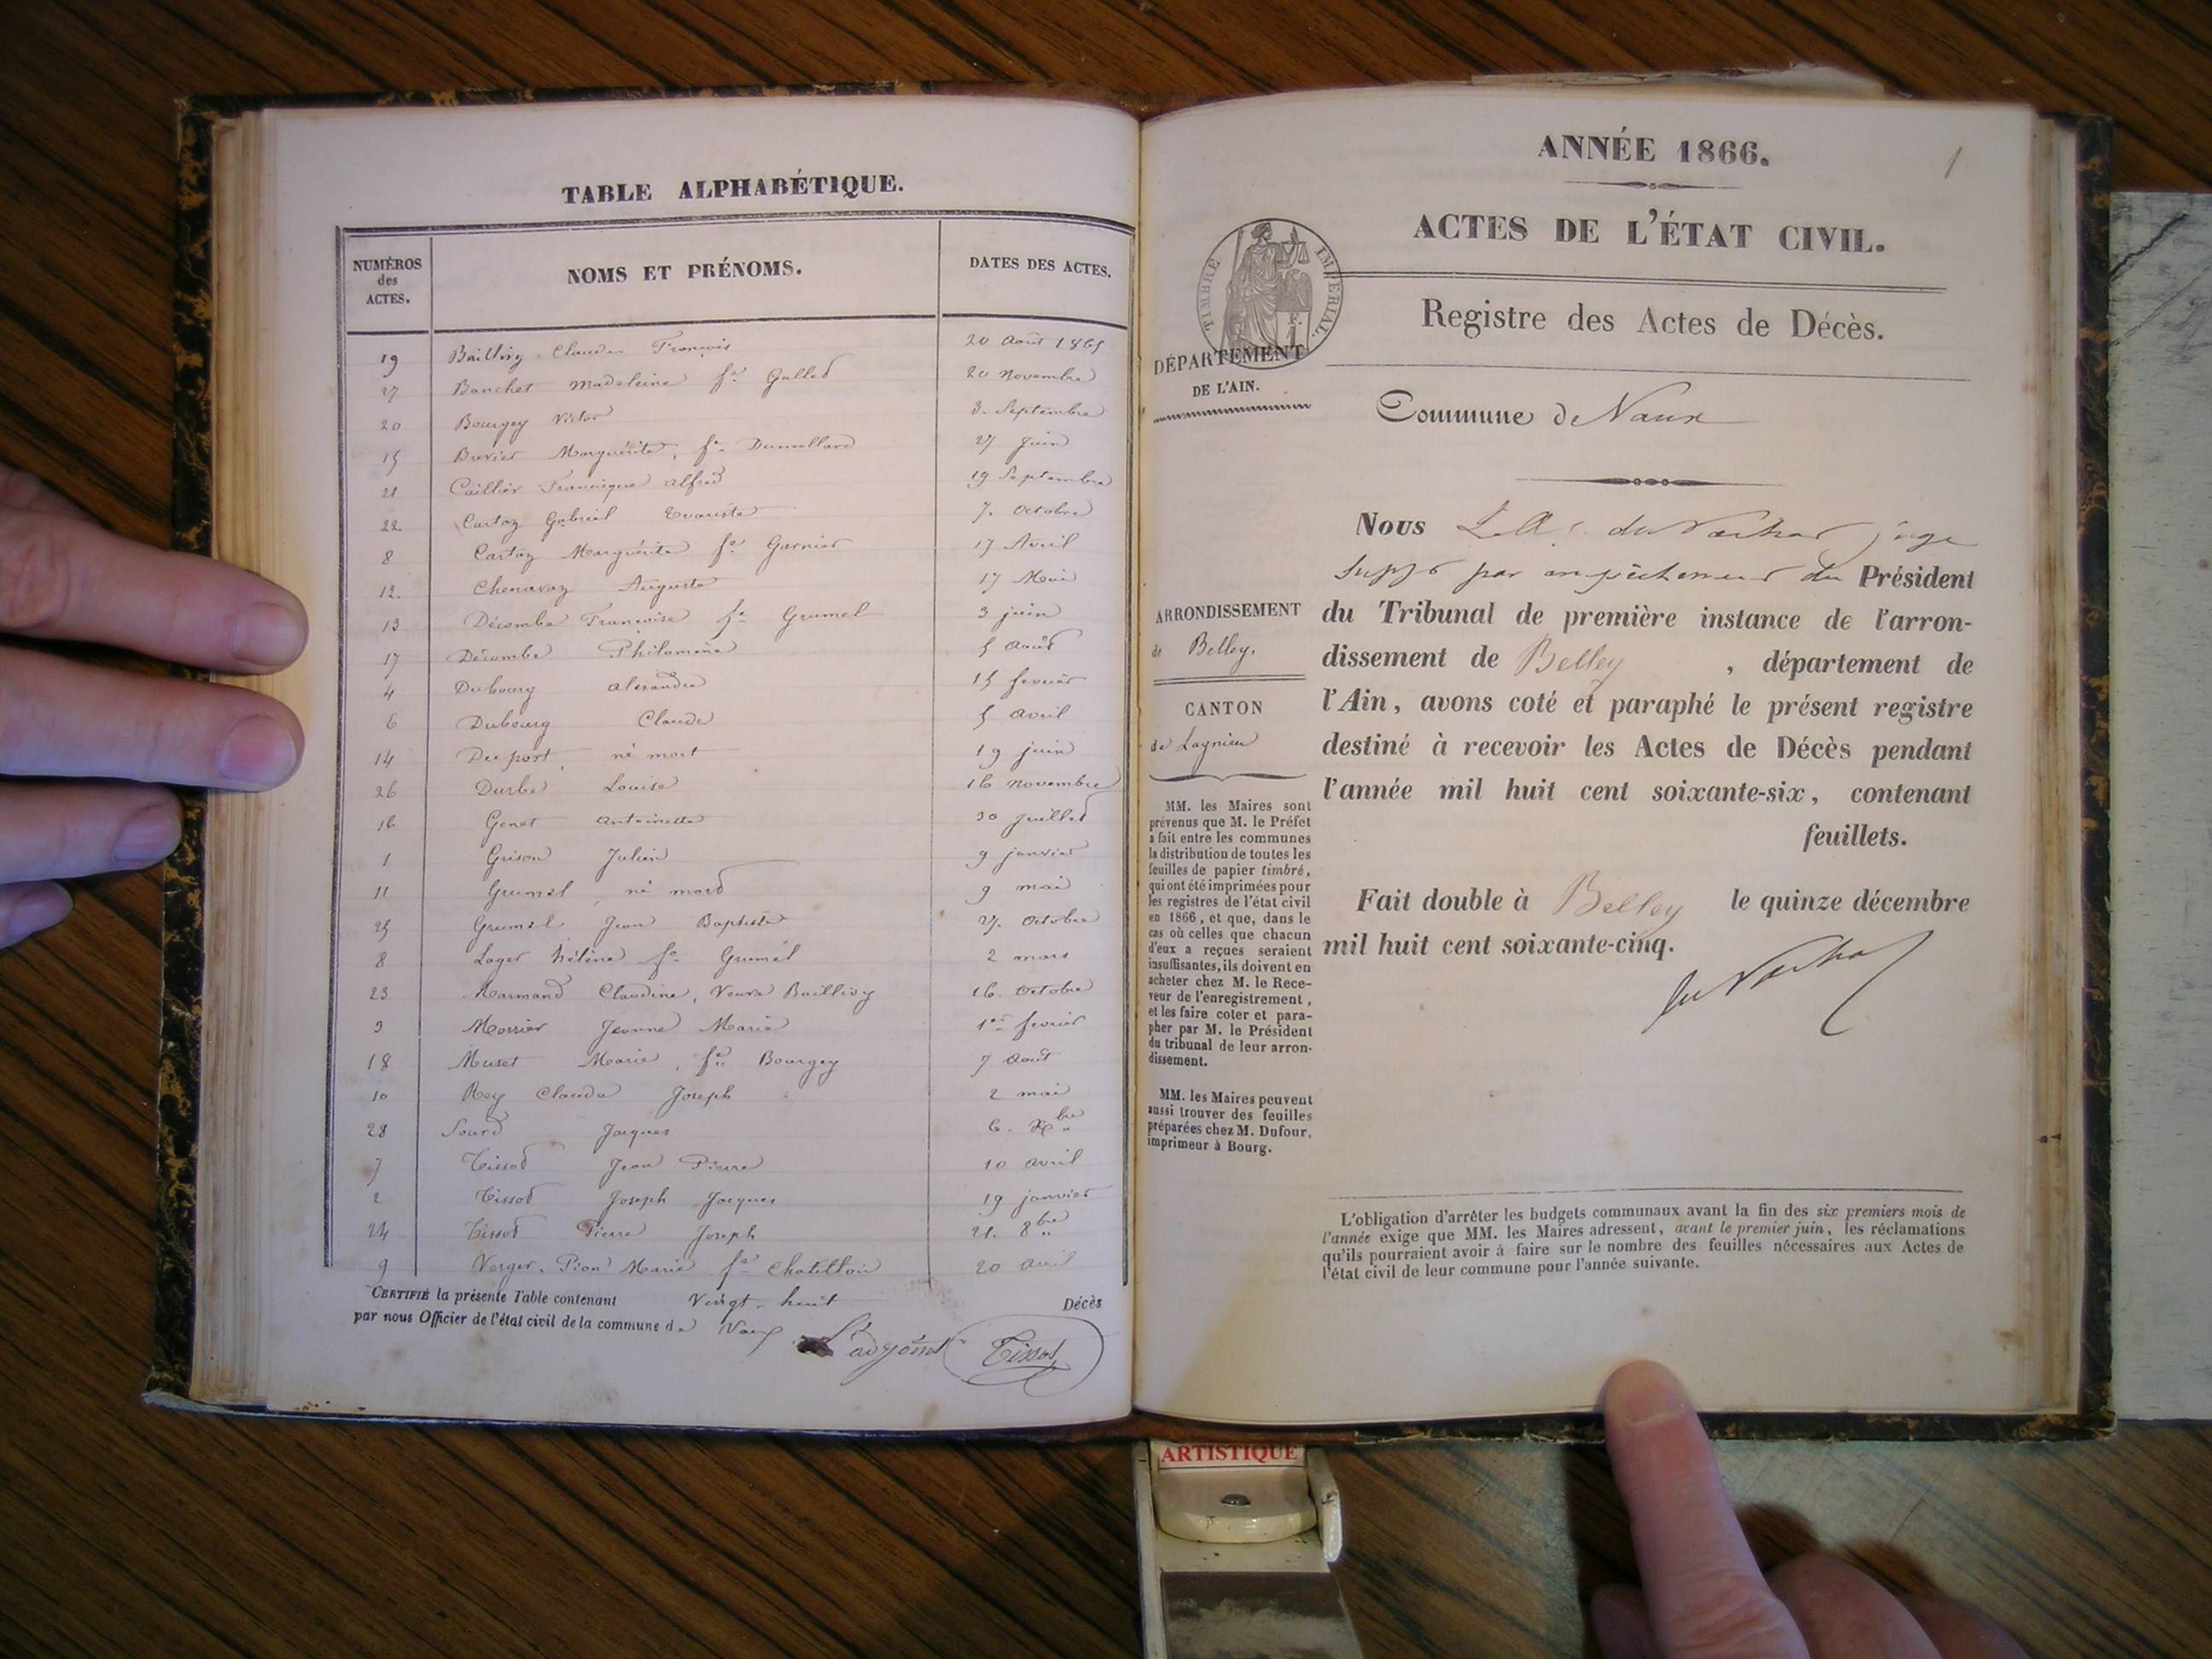 TABLE ALPHABÉTIQUE.
NUMÉROS des ACTES. NOMS ET PRÉNOMS. DATES DES ACTES.
19 Baillivy Claude François 20 Août 1865
27 Banchet Madeleine fe Gallet 20 Novembre
20 Bourgey Victor 3. Septembre
15 Brevier Marguérite, fe Dumollard 27 Juin
21 Caillier Francisque Alfred 19 Septembre
22 Cartaz Gabriel Evariste 7. Octobre
8 Cartaz Marguérite fe Garnier 17 Avril
12. Chenavaz Auguste 17 Mai
13 Décombe Françoise fe Grumel 3 juin
17 Décombe Philomène 5 Août
4 Dubourg Alexandre 15 fevrier
6 Dubourg Claude 5 Avril
14 Duport, né mort 19 juin
26 Durbe Louise 16 Novembre
16 Genet Antoinette 30 Juillet
1 Grison Julien 9 janvier
11 Grumel, né mort 9 mai
25 Grumel Jean Baptiste 27. Octobre
8 Loyer Hélène fe Grumel 2 mars
23 Marmand Claudine, Veuve Baillivy 16. Octobre
3 Morrier Jeanne Marie 1er fevrier
18 Muset Marie, fe Bourgey 7 Août
10 Rey Claude Joseph 2 mai
28 Sourd Jacques 6. Xbre
7 Tissot Jean Pierre 10 avril
2 Tissot Joseph Jacques 19 janvier
24 Tissot Pierre Joseph 21. 8bre
9 Verger-Pion Marie fe Chatillon 20 Avril
CERTIFIÉ la présente Table contenant Vingt-huit Décès
par nous Officier de l'état civil de la commune de Vaux
L'adjoint Tissot
ANNÉE 1866.
1
ACTES DE L'ÉTAT CIVIL.
TIMBRE IMPÉRIAL.
Registre des Actes de Décès.
DÉPARTEMENT
DE L'AIN.
Commune de Vaux
Nous juge
supp par empêchement du Président
du Tribunal de première instance de l'arron-
dissement de Belley, département de
l'Ain, avons coté et paraphé le présent registre
destiné à recevoir les Actes de Décès pendant
l'année mil huit cent soixante-six, contenant
feuillets.
Fait double à Belley le quinze décembre
mil huit cent soixante-cinq.
ARRONDISSEMENT
de Belley.
CANTON
de Lagnieu
MM. les Maires sont
prévenus que M. le Préfet
a fait entre les communes
la distribution de toutes les
feuilles de papier timbré,
qui ont été imprimées pour
les registres de l'état civil
en 1866, et que, dans le
cas où celles que chacun
d'eux a reçues seraient
insuffisantes, ils doivent en
acheter chez M. le Rece-
veur de l'enregistrement,
et les faire coter et para-
pher par M. le Président
du tribunal de leur arron-
dissement.
MM. les Maires peuvent
aussi trouver des feuilles
préparées chez M. Dufour,
imprimeur à Bourg.
L'obligation d'arrêter les budgets communaux avant la fin des six premiers mois de
l'année exige que MM. les Maires adressent, avant le premier juin, les réclamations
qu'ils pourraient avoir à faire sur le nombre des feuilles nécessaires aux Actes de
l'état civil de leur commune pour l'année suivante.
ARTISTIQUE